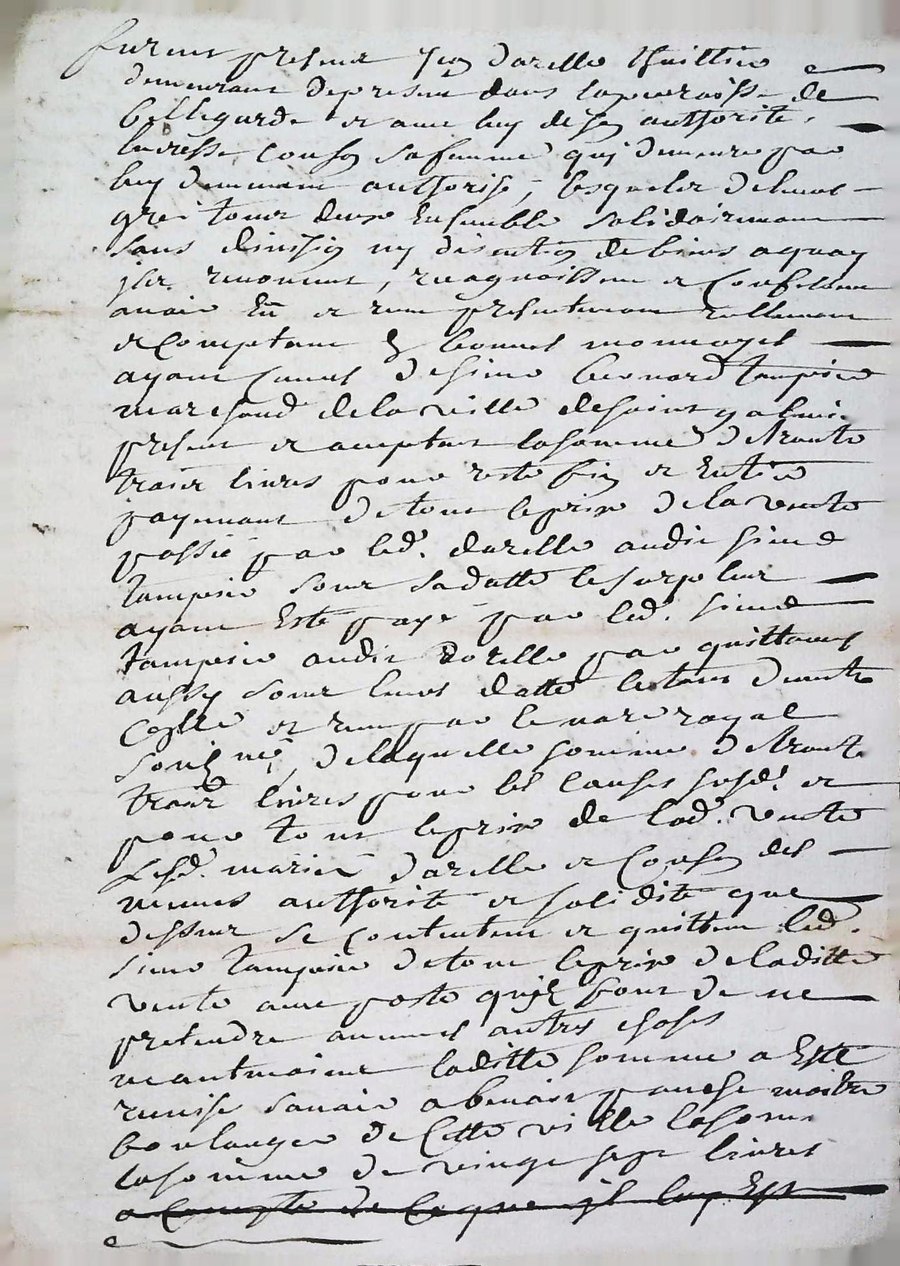 furent presents Jean Darelle thuillier
demeurant depresent dans laparroisse de
bellegarde et avec luy de son authorité
safemme qui demeure par
luy demmant authorisé, lesquels deleur
gré tous deux Ensemble solidairement
sans division ny de biens aquoy
ils renoncent, recognoissent et Confessent
avoir Eu et receu presentement reellement
et Comptant En bonnes monnoyes
ayant Cours desieur bernard tampier
marchand delaville desaint galmier
present et acceptant lasomme detrante
trois livres pour reste fin et Entier
payement detout leprix delavente
passée par led. darelle audit sieur
tampier sous sadatte lesurplus
ayant Esté payé par led. sieur
tampier audit Darelle par quittances
aussy sous leurs datte letout
et receu par lenore royal
soussigné, delaquelle somme detrante
trois livres pour les Causes susd. et
pour tout leprix de lad. vente
Lesd. mariés Darelle et Couson des
memes authorité et solidité que
dessus se Contentent et quittent led.
sieur tampier detout leprix deladitte
vente avec pacte quils font de ne
pretendre aucunes autres choses
neantmoins laditte somme a Esté
remise savoir abenoist maitre
boulanger de Cette ville lasome
lasomme de vingt sept livres
a Compte de Ceque il luy Est